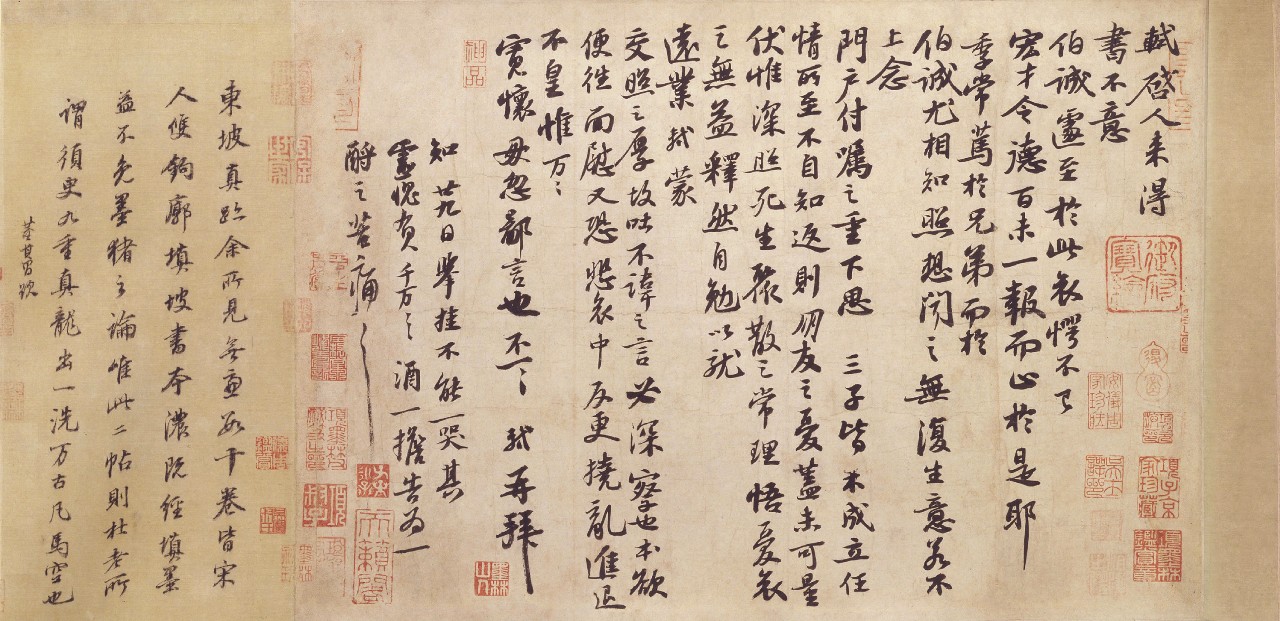 軾啓人來得
書不意
伯誠遽至於此哀愕不已
宏才令德百未一報而止於是耶
季常篤於兄弟而於
伯誠尤相知照想聞之無復生意若不
上念
門戶付囑之重下思三子皆未成立任
情所至不自知返則朋友之憂蓋未可量
伏惟深照死生聚散之常理悟憂哀
之無益釋然自勉以就
遠業軾蒙
交照之厚故吐不諱之言必深察也本欲
便往面慰又恐悲哀中反更撓亂進退
不皇惟万々
寬懷毋忽鄙言也不一々軾再拜
知廿九日舉挂不能一哭其
靈愧負千万々酒一擔告為一
酹之苦痛々
東坡真跡余所見無慮數十卷皆宋
人雙鉤廓填坡書本濃既經填墨
益不免墨豬之論唯此二帖則杜老所
謂須臾九重真龍出一洗万古凡馬空也
董其昌題
御府寶繪
項子京家珍藏
天籟閣
墨林山人
神品